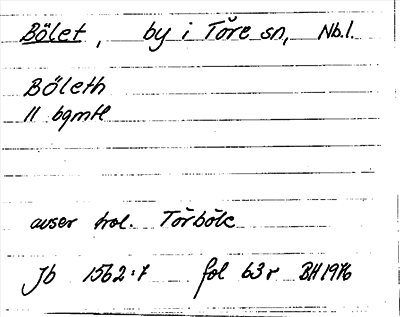 Bölet, by i Töre sn, Nb.l.
Böleth
11 bqmtl
avser trol. Törböle
Jb 1562:7 fol 63r BH 1976